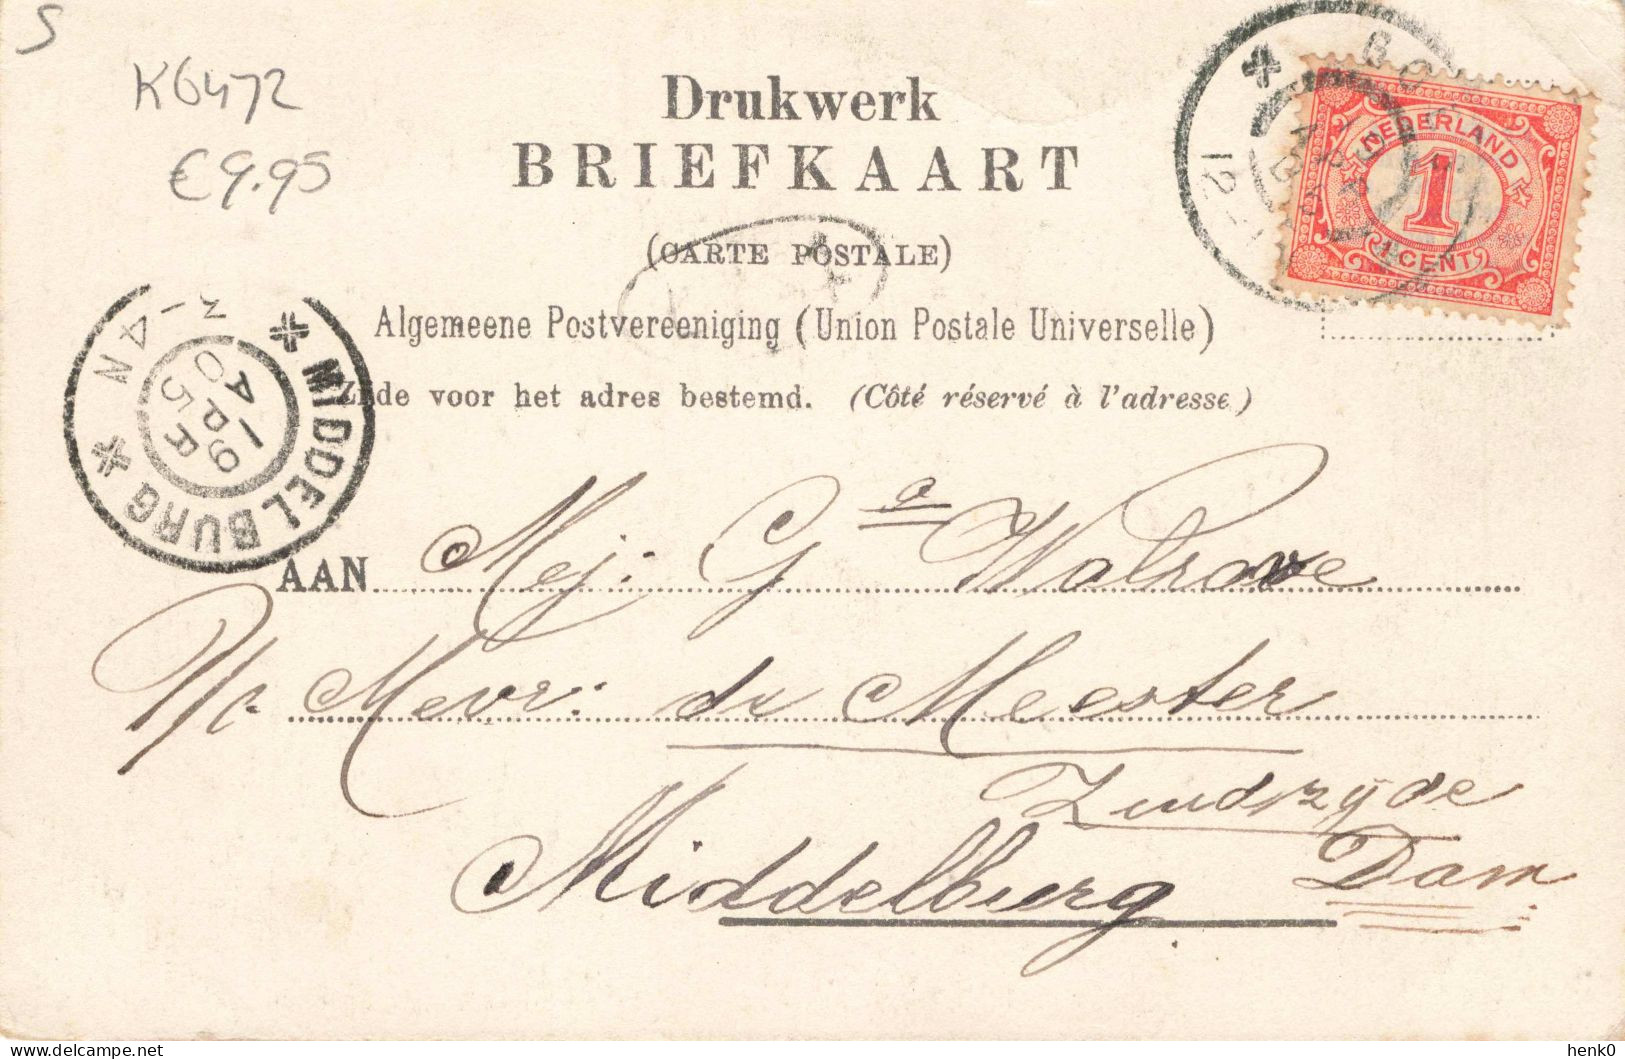 S
K6472
€9.95
Drukwerk
BRIEFKAART
(CARTE POSTALE)
Algemeene Postvereeniging (Union Postale Universelle)
Zijde voor het adres bestemd. (Côté réservé à l'adresse)
NEDERLAND
1
1 CENT
12-1
MIDDELBURG
3-4N
19 APR 05
AAN Mej: G a Walrave
p/a Mevr: de Meester
Zuidzijde
Middelburg Dam
henk0